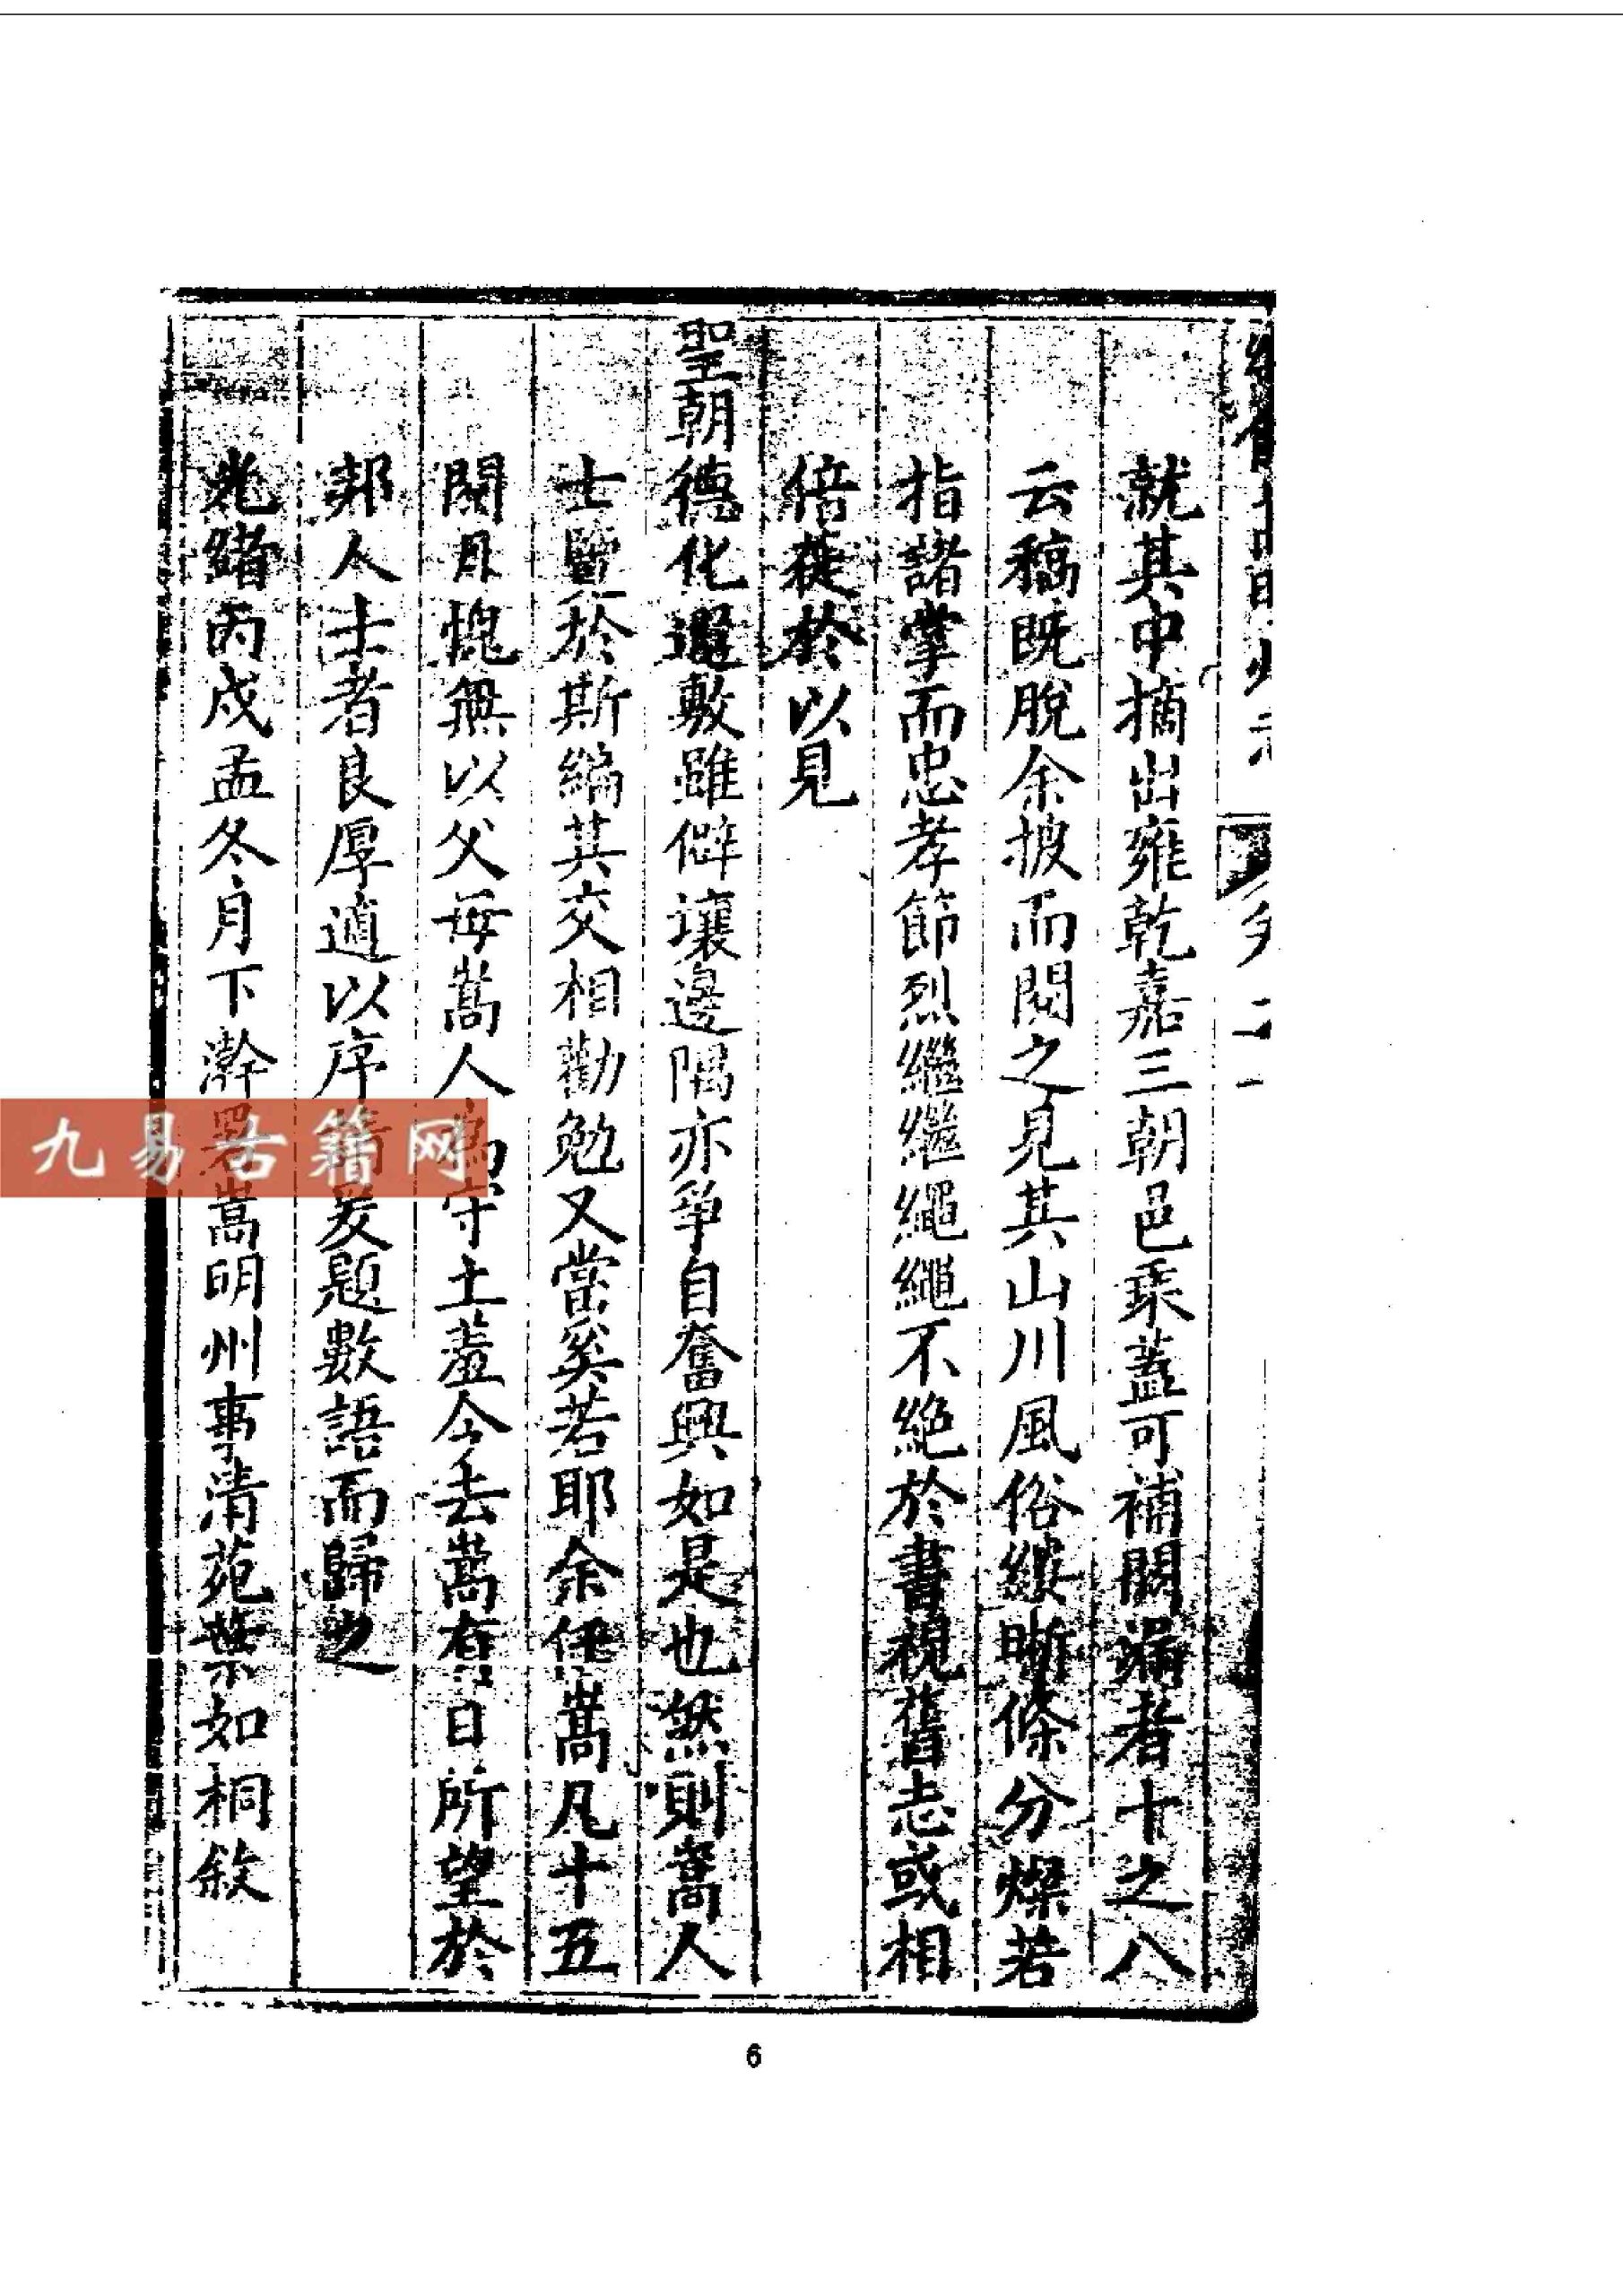 就其中摘出雍乾嘉三朝邑乘蓋可補闕漏者十之八
云稿既脫余披而閱之見其山川風俗縷晰條分燦若
指諸掌而忠孝節烈繼繼繩繩不絕於書視舊志或相
倍蓰於以見
聖朝德化遐敷雖僻壤邊隅亦爭自奮興如是也然則嵩人
士覽於斯編其交相勸勉又當奚若耶余任嵩凡十五
閱月愧無以父母嵩人為守土羞今去嵩有日所望於
邦人士者良厚適以序請爰題數語而歸之
光緒丙戌孟冬月下澣署嵩明州事清苑葉如桐敘
九易古籍网
6